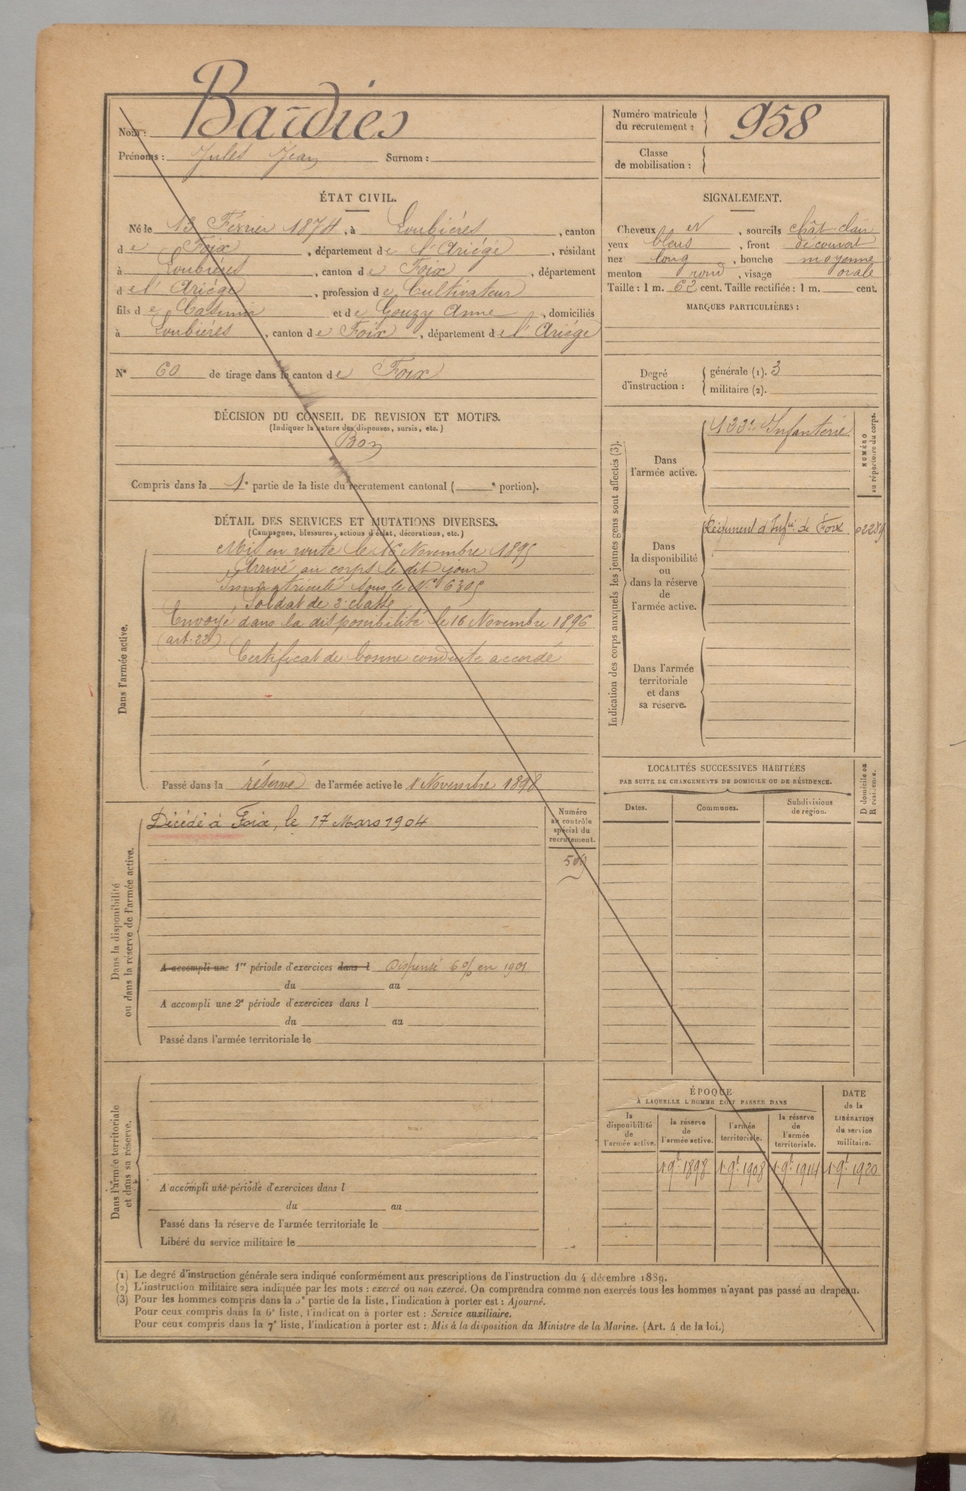 Nom : Bardiès
Prénoms : Jules Jean Surnom :
Numéro matricule du recrutement : 958
Classe de mobilisation :
ÉTAT CIVIL.
Né le 13 Février 1874, à Loubières, canton
de Foix, département de l'Ariège, résidant
à Loubières, canton de Foix, département
de l'Ariège, profession de Cultivateur
fils de Casimir et de Gouzy Anne, domiciliés
à Loubières, canton de Foix, département de l'Ariège
N° 60 de tirage dans le canton de Foix
SIGNALEMENT.
Cheveux et, sourcils chât clair
yeux bleus, front découvert
nez long, bouche moyenne
menton rond, visage ovale
Taille : 1 m. 62 cent. Taille rectifiée : 1 m. cent.
MARQUES PARTICULIÈRES :
Degré d'instruction : générale (1). 3
militaire (2).
DÉCISION DU CONSEIL DE REVISION ET MOTIFS.
(Indiquer la nature des dispenses, sursis, etc.)
Bon
Compris dans la 1e partie de la liste du recrutement cantonal ( e portion).
DÉTAIL DES SERVICES ET MUTATIONS DIVERSES.
(Campagnes, blessures, actions d'éclat, décorations, etc.)
Dans l'armée active.
Mis en route le 16 Novembre 1895
Arrivé au corps le dit jour
Immatriculé sous le N° 6305
Soldat de 2e classe
Envoyé dans la disponibilité le 16 Novembre 1896
(art. 23)
Certificat de bonne conduite accordé
Passé dans la réserve de l'armée active le 1 Novembre 1898
Indication des corps auxquels les jeunes gens sont affectés (3).
NUMÉRO au répertoire du corps.
Dans l'armée active.
133e Infanterie
Dans la disponibilité ou dans la réserve de l'armée active.
Régiment d'Infie de Foix 02284
Dans l'armée territoriale et dans sa réserve.
LOCALITÉS SUCCESSIVES HABITÉES
PAR SUITE DE CHANGEMENTS DE DOMICILE OU DE RÉSIDENCE.
Dates. Communes. Subdivisions de région. D domicile ou R résidence.
Dans la disponibilité ou dans la réserve de l'armée active.
Décédé à Foix, le 17 Mars 1904
Numéro au contrôle spécial du recrutement.
A accompli une 1re période d'exercices dans l Dispensé 6 % en 1901
du au
A accompli une 2e période d'exercices dans l
du au
Passé dans l'armée territoriale le
Dans l'armée territoriale et dans sa réserve.
A accompli une période d'exercices dans l
du au
Passé dans la réserve de l'armée territoriale le
Libéré du service militaire le
ÉPOQUE
À LAQUELLE L'HOMME DOIT PASSER DANS
la disponibilité de l'armée active. la réserve de l'armée active. l'armée territoriale. la réserve de l'armée territoriale.
DATE de la LIBÉRATION du service militaire.
1 9bre 1898 1 9bre 1908 1 9bre 1914 1 9bre 1920
(1) Le degré d'instruction générale sera indiqué conformément aux prescriptions de l'instruction du 4 décembre 1889.
(2) L'instruction militaire sera indiquée par les mots : exercé ou non exercé. On comprendra comme non exercés tous les hommes n'ayant pas passé au drapeau.
(3) Pour les hommes compris dans la 5e partie de la liste, l'indication à porter est : Ajourné.
Pour ceux compris dans la 6e liste, l'indication à porter est : Service auxiliaire.
Pour ceux compris dans la 7e liste, l'indication à porter est : Mis à la disposition du Ministre de la Marine. (Art. 4 de la loi.)